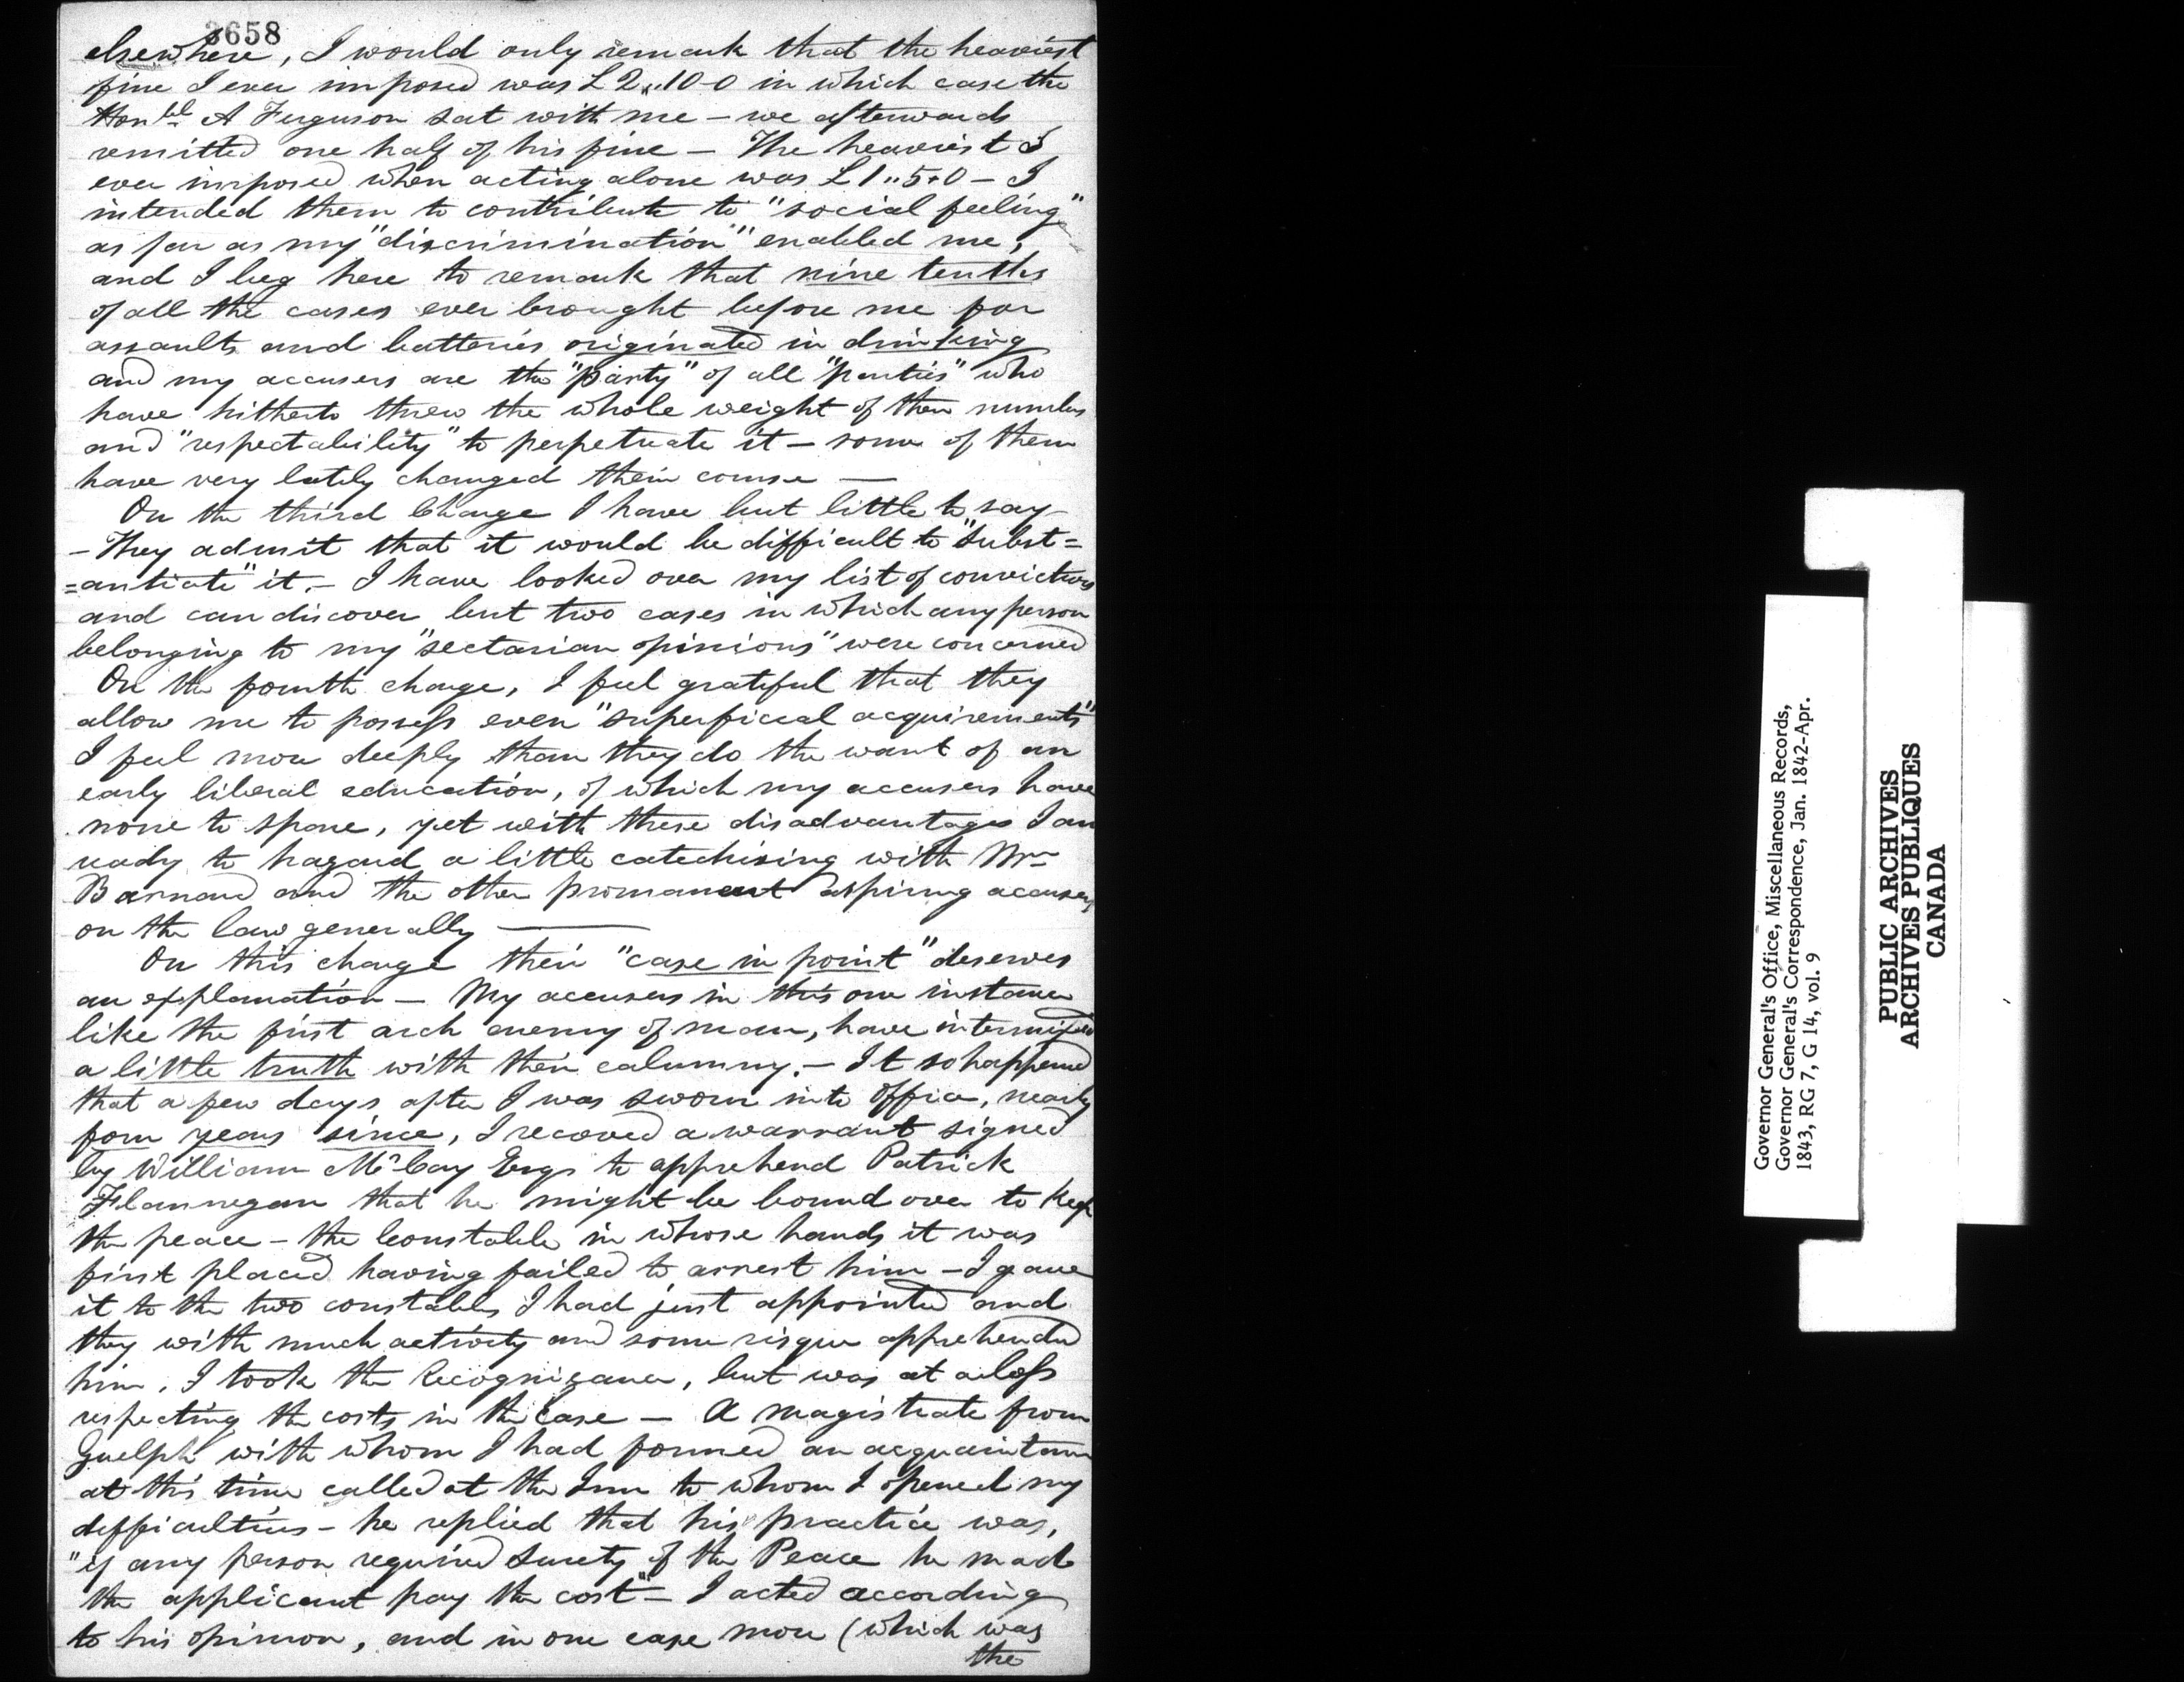 3658
elsewhere, I would only remark that the heaviest
fine I ever imposed was £2,,10-0 in which case the
Honble A Ferguson sat with me - we afterwards
remitted one half of his fine - The heaviest I
ever imposed when acting alone was £1,,5,0 - I
intended them to contribute to "social feeling"
as far as my "discrimination" enabled me,
and I beg here to remark that nine tenths
of all the cases ever brought before me for
assaults and batteries originated in drinking
and my accusers are the "party" of all "parties" who
have hitherto threw the whole weight of their numbers
and "respectability" to perpetuate it - some of them
have very lately changed their course —
On the third Charge I have but little to say -
- They admit that it would be difficult to "subst=
=antiate" it. - I have looked over my list of convictions
and can discover but two cases in which any person
belonging to my "sectarian opinions" were concerned
On the fourth charge, I feel grateful that they
allow me to possess even "superficial acquirements"
I feel more deeply than they do the want of an
early liberal education, of which my accusers have
none to spare, yet with these disadvantages I am
ready to hazard a little catechising with Mr
Barnard and the other promanent aspiring accusers
on the law generally —
On this charge their "case in point" deserves
an explanation - My accusers in this one instance
like the first arch enemy of man, have intermixed
a little truth with their calumny. - It so happened
that a few days after I was sworn into office, nearly
four years since, I receved a warrant signed
by William McCay Esqr to apprehend Patrick
Flannegan that he might be bound over to keep
the peace - the Constable in whose hands it was
first placed having failed to arrest him - I gave
it to the two constables I had just appointed and
they with much activity and some risque apprehended
him. I took the Recognizance, but was at a loss
respecting the costs in the Case - A magistrate from
Guelph with whom I had formed an acquaintance
at this time called at the Inn to whom I opened my
difficulties - he replied that his practice was,
"if any person required Surety of the Peace he made
the applicant pay the cost" - I acted according
to his opinion, and in one case more (which was
the
Governor General's Office, Miscellaneous Records,
Governor General's Correspondence, Jan. 1842-Apr.
1843, RG 7, G 14, vol. 9
PUBLIC ARCHIVES
ARCHIVES PUBLIQUES
CANADA